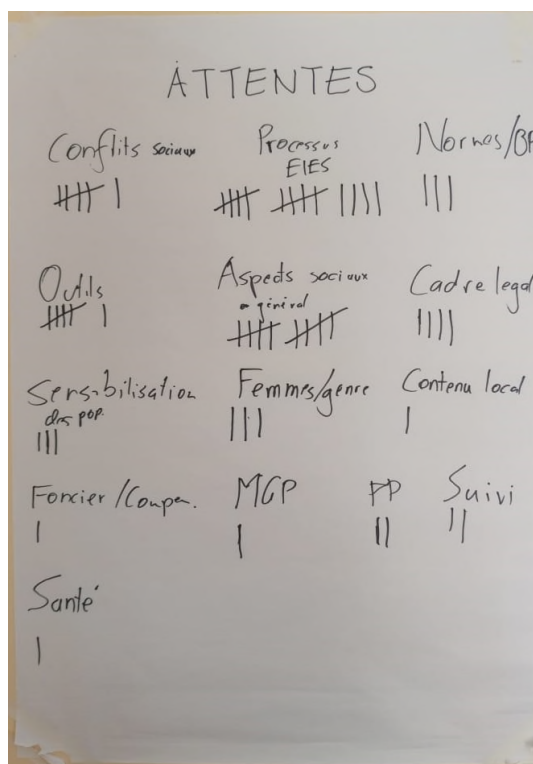 ATTENTES
Conflits sociaux
Processus
EIES
Normes/BP
Outils
Aspects sociaux
général
Cadre legal
Sensibilisation
des pop.
Femmes/genre
Contenu local
Foncier/Compen.
MGP
PP
Suivi
Santé